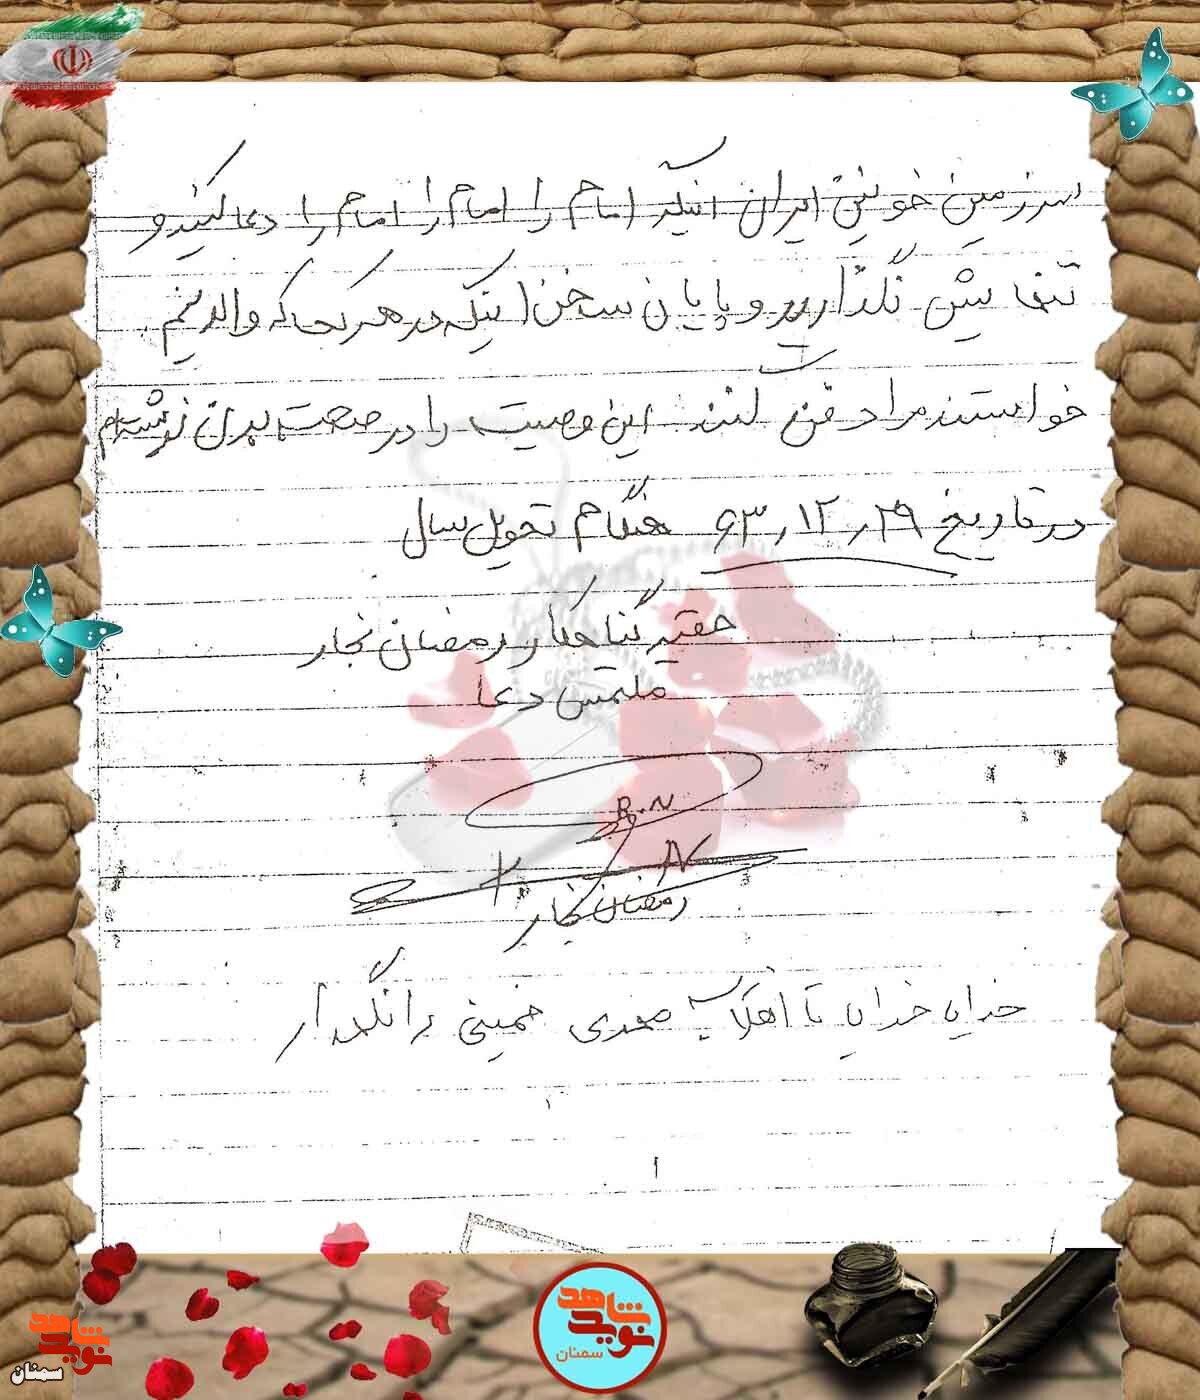 سرزمین خونین ایران اینکه امام را امام را امام را دعا کنید و
تنهایش نگذارید و پایان سخن اینکه در هر کجا که والدینم
خواستند مرا دفن کنند. این وصیت را در صحت بدن نوشته‌ام
در تاریخ ۶۳٫۱۲٫۲۹ هنگام تحویل سال
حقیر گناهکار رمضان نجار
ملتمس دعا
R.N
رمضان نجار
خدایا خدایا تا انقلاب مهدی خمینی را نگهدار
نوید شاهد
سمنان
نوید شاهد
سمنان